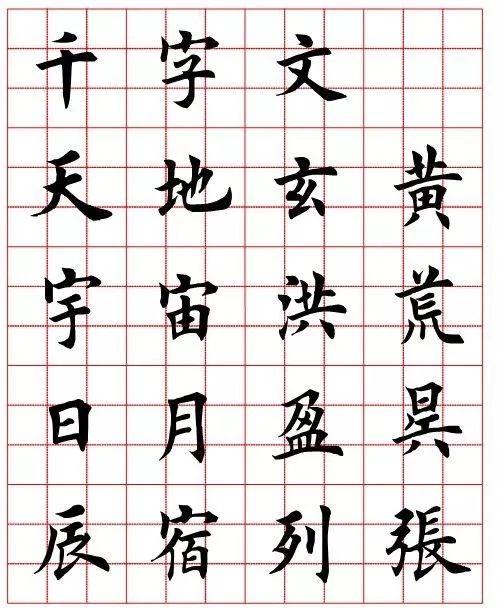 千字文
天地玄黄
宇宙洪荒
日月盈昃
辰宿列張